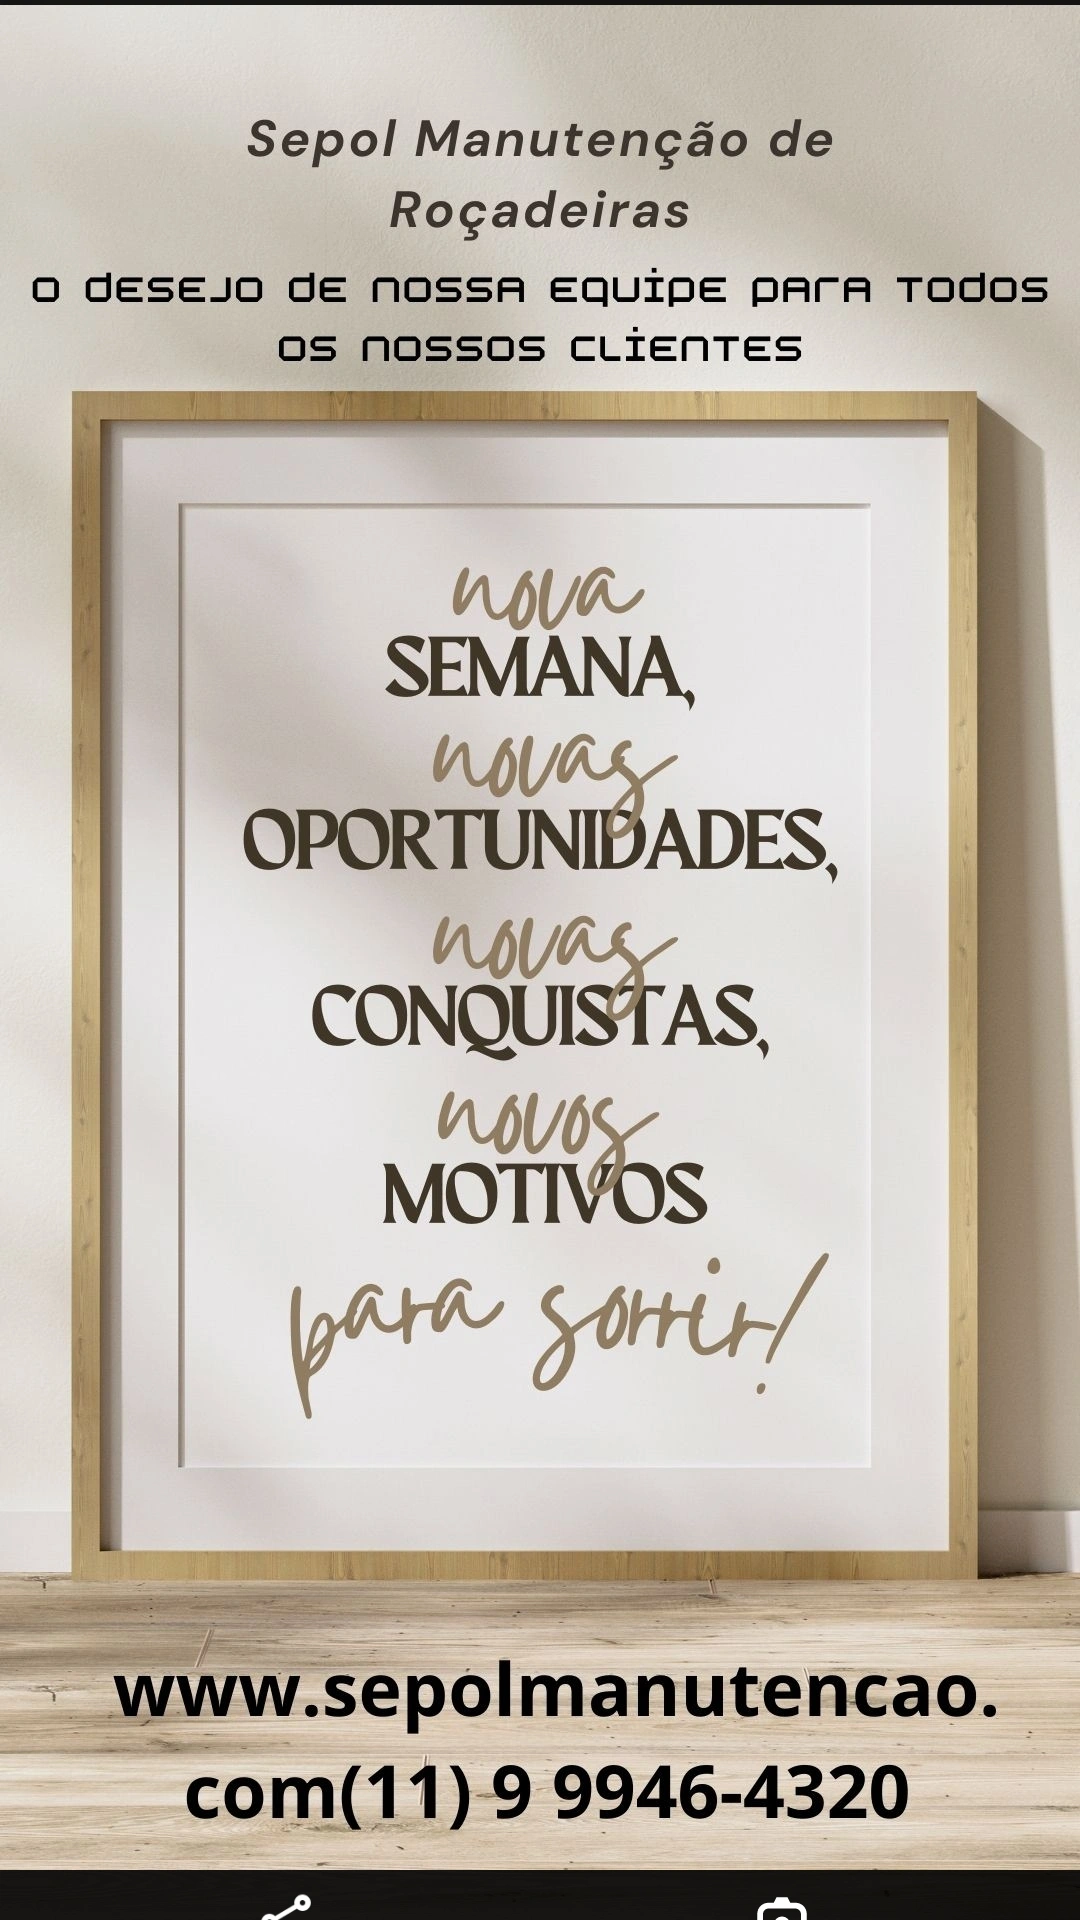 Sepol Manutenção de
Roçadeiras
O DESEJO DE NOSSA EQUIPE PARA TODOS
OS NOSSOS CLIENTES
nova
SEMANA,
novas
OPORTUNIDADES,
novas
CONQUISTAS,
novos
MOTIVOS
para sorrir!
www.sepolmanutencao.
com(11) 9 9946-4320